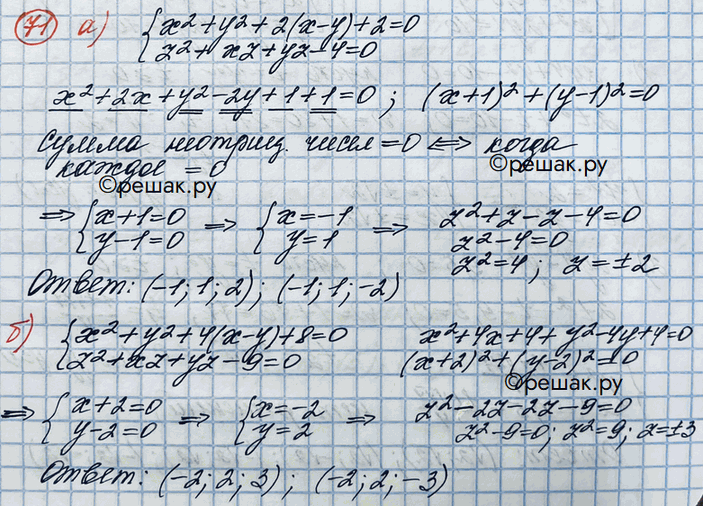 71 а) { x² + y² + 2(x-y) + 2 = 0
z² + xz + yz - 4 = 0
x² + 2x + y² - 2y + 1 + 1 = 0 ; (x+1)² + (y-1)² = 0
Сумма неотриц. чисел = 0 <=> когда
каждое = 0
©решак.ру
©решак.ру
=> { x+1=0 => { x=-1 => z² + z - z - 4 = 0
y-1=0 y=1 z² - 4 = 0
z² = 4 ; z = ±2
Ответ: (-1; 1; 2) ; (-1; 1; -2)
б) { x² + y² + 4(x-y) + 8 = 0 x² + 4x + 4 + y² - 4y + 4 = 0
z² + xz + yz - 9 = 0 (x+2)² + (y-2)² = 0
©решак.ру
=> { x+2=0 => { x=-2 => z² - 2z - 2z - 9 = 0
y-2=0 y=2 z² - 9 = 0; z² = 9; z = ±3
Ответ: (-2; 2; 3) ; (-2; 2; -3)